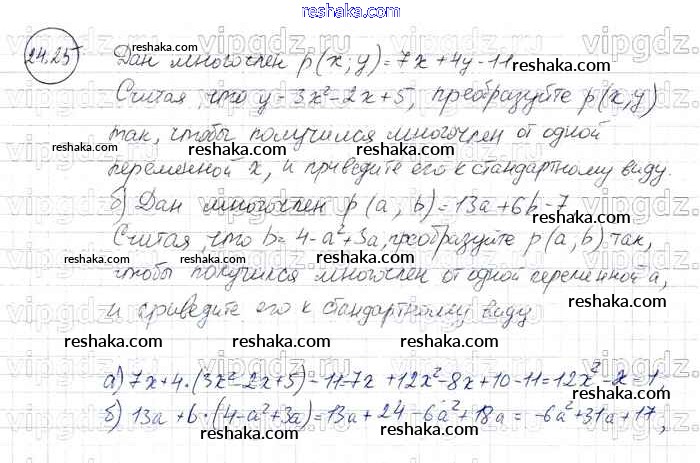 reshaka.com
24.25
reshaka.com
Дан многочлен p(x; y)=7x+4y-11
reshaka.com
Считая, что y=3x²-2x+5, преобразуйте p(x;y)
reshaka.com reshaka.com
так, чтобы получился многочлен от одной
переменной x, и приведите его к стандартному виду.
reshaka.com reshaka.com reshaka.com
б) Дан многочлен p(a, b)=13a+6b-7
Считая, что b=4-a²+3a, преобразуйте p(a, b) так,
reshaka.com reshaka.com reshaka.com
чтобы получился многочлен от одной переменной a,
и приведите его к стандартному виду
reshaka.com reshaka.com reshaka.com
а) 7x+4·(3x²-2x+5)-11-7x+12x²-8x+10-11=12x²-x=1,
reshaka.com reshaka.com reshaka.com
б) 13a+6·(4-a²+3a)=13a+24-6a²+18a=-6a²+31a+17,
reshaka.com reshaka.com reshaka.com